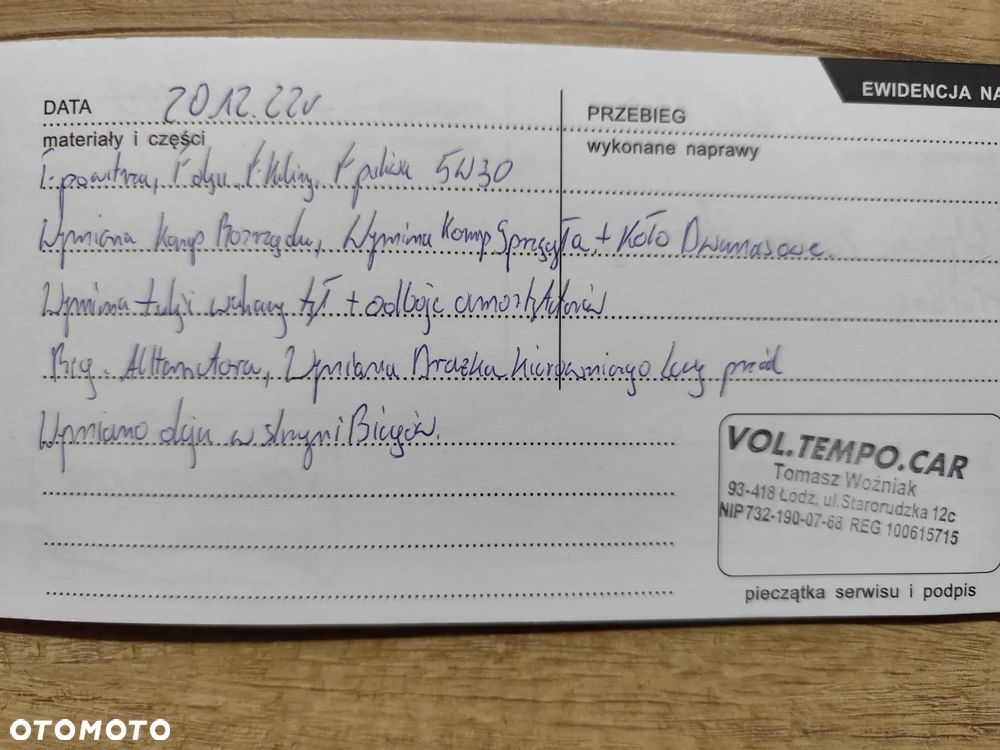 EWIDENCJA NA
DATA 20.12.22r
PRZEBIEG
materiały i części
wykonane naprawy
F. powietrza, F oleju, F. Kabiny, F paliwa 5W30
Wymiana Komp Rozrządu, Wymiana Komp Sprzęgła + Koło Dwumasowe.
Wymiana tulei wahaczy + odboje amortyzatorów
Reg. Alternatora, Wymiana Drążka Kierowniczego Lewy przód
Wymiano oleju w skrzyni Biegów.
VOL.TEMPO.CAR
Tomasz Woźniak
93-418 Łódź, ul.Starorudzka 12c
NIP 732-190-07-68 REG 100615715
pieczątka serwisu i podpis
OTOMOTO